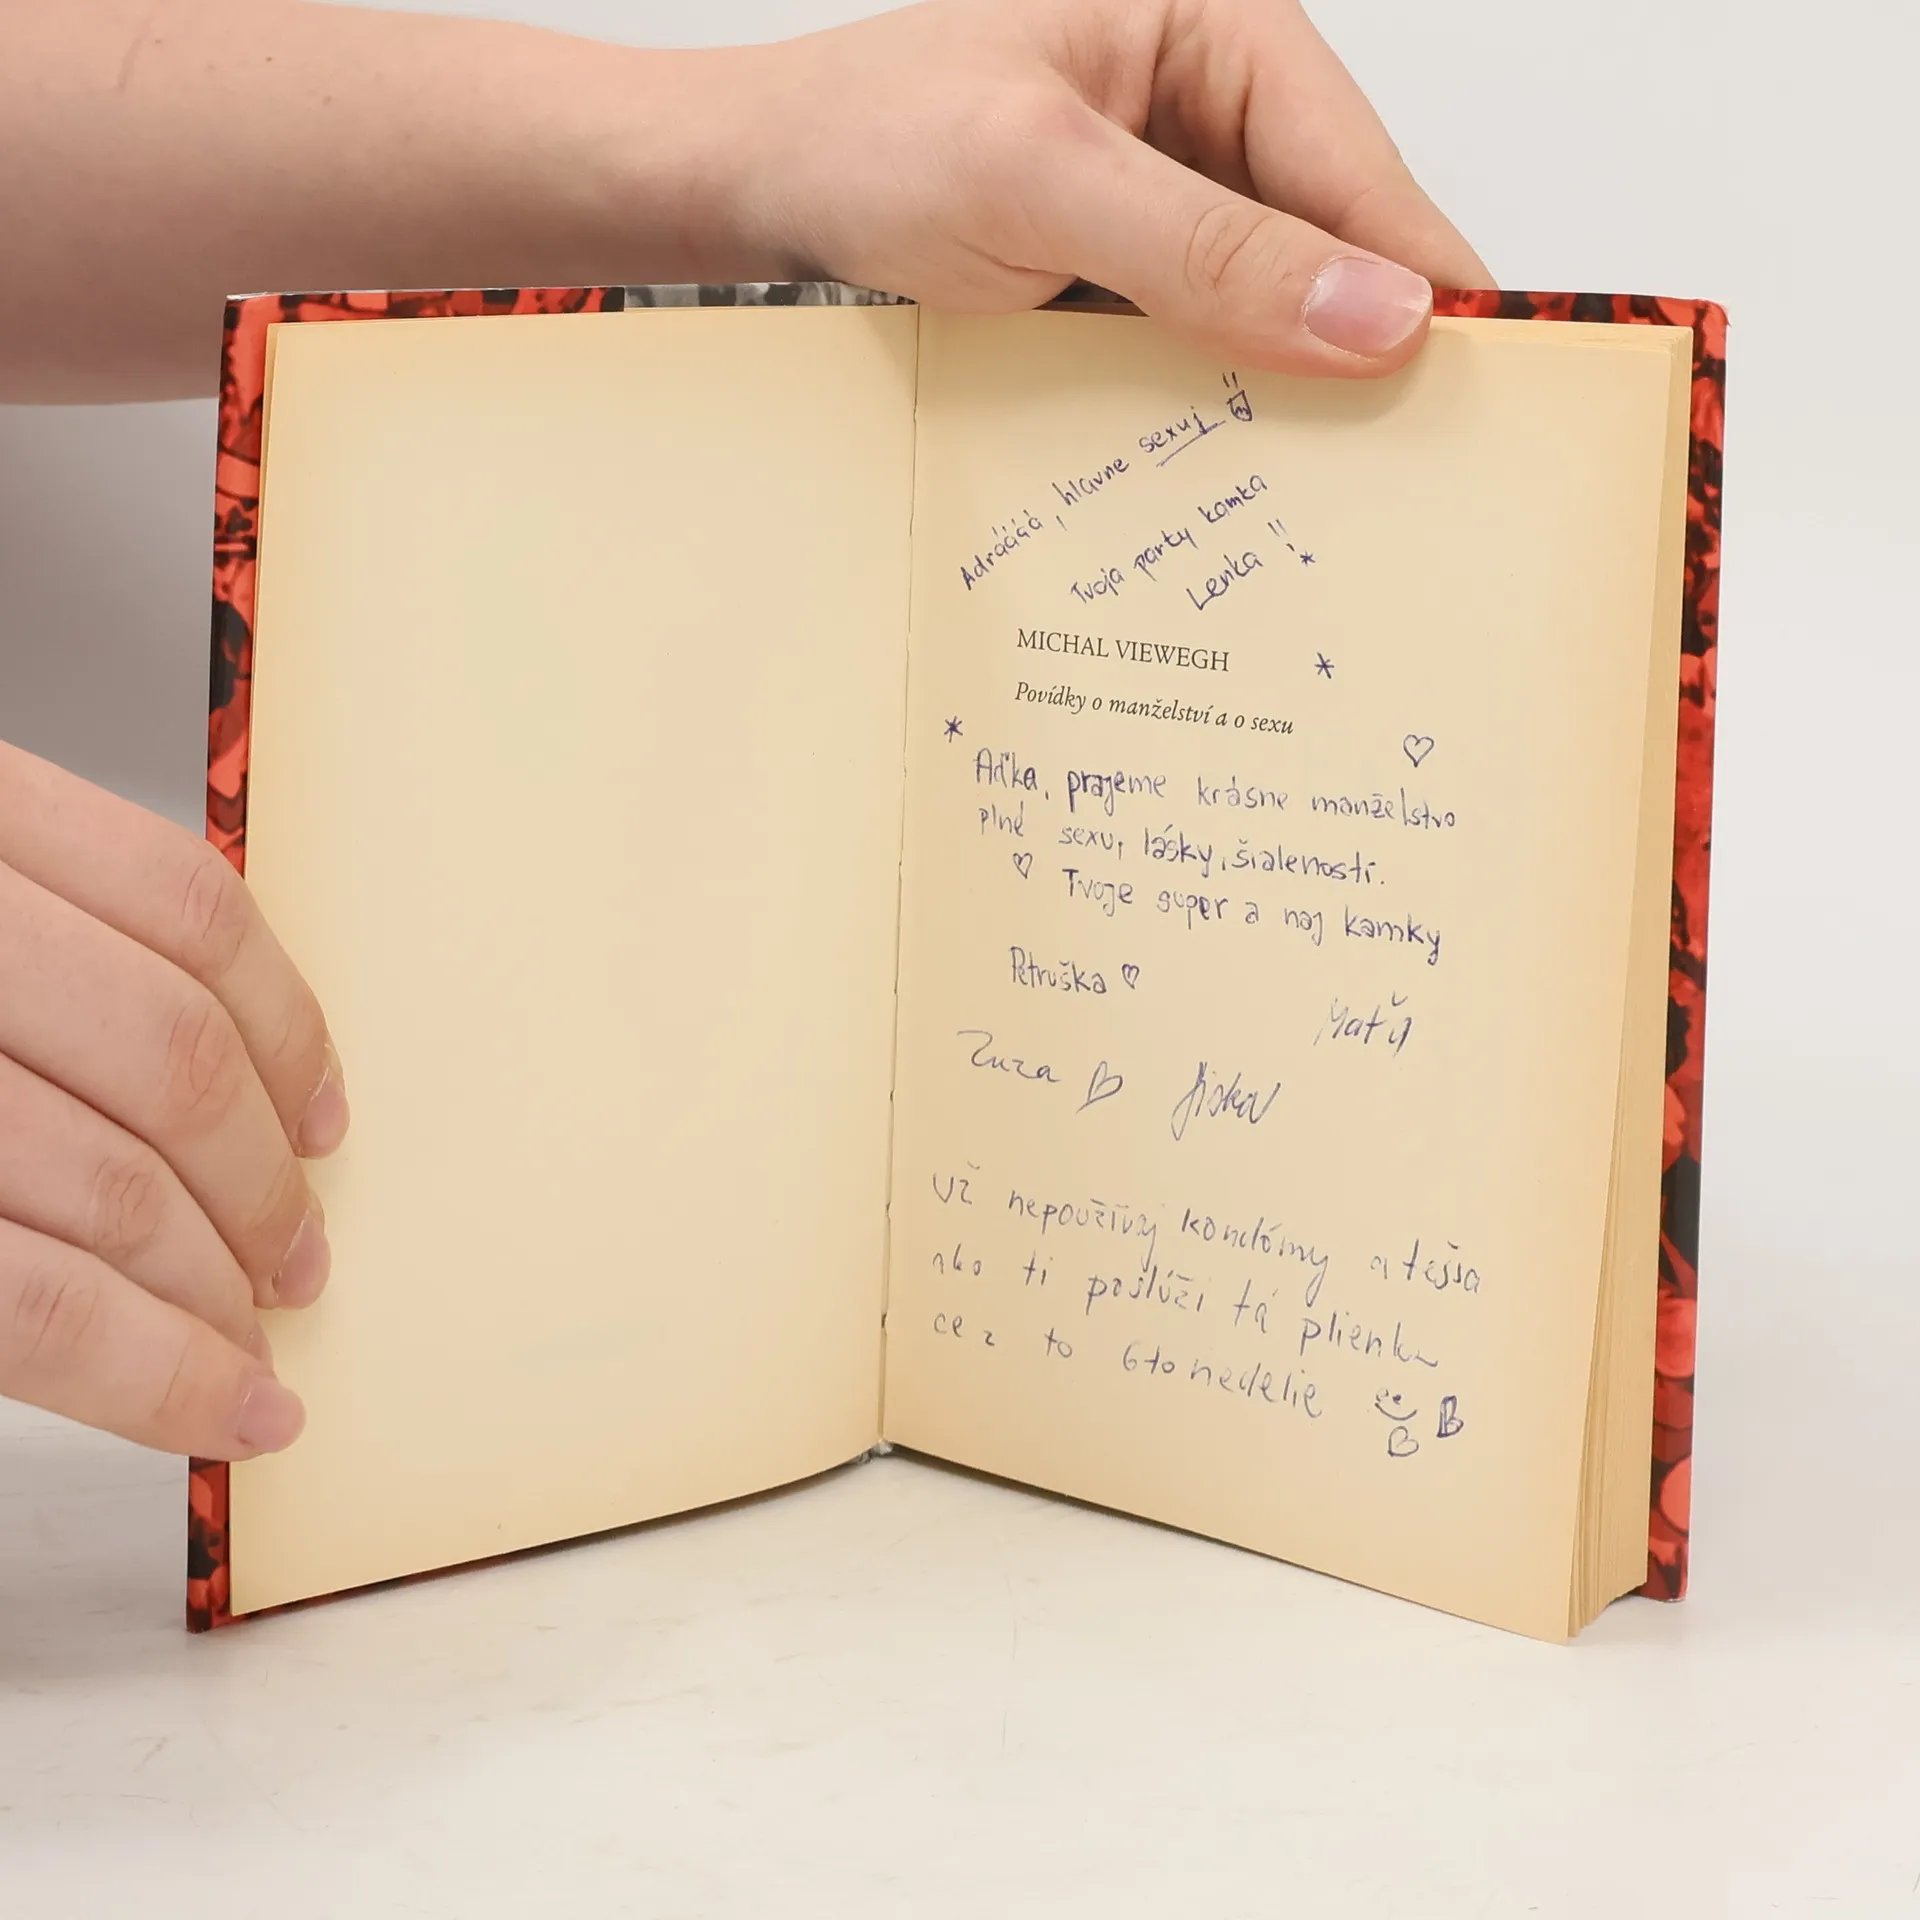 Adráááá, hlavne sexuj
Tvoja party kamka
Lenka !!
MICHAL VIEWEGH
Povídky o manželství a o sexu
Aďka, prajeme krásne manželstvo
plné sexu, lásky, šialenosti.
Tvoje super a naj kamky
Petruška
Maťa
Zuza Jiska
Už nepoužívaj kondómy a teš sa
ako ti poslúži tá plienka
cez to 6to nedelie